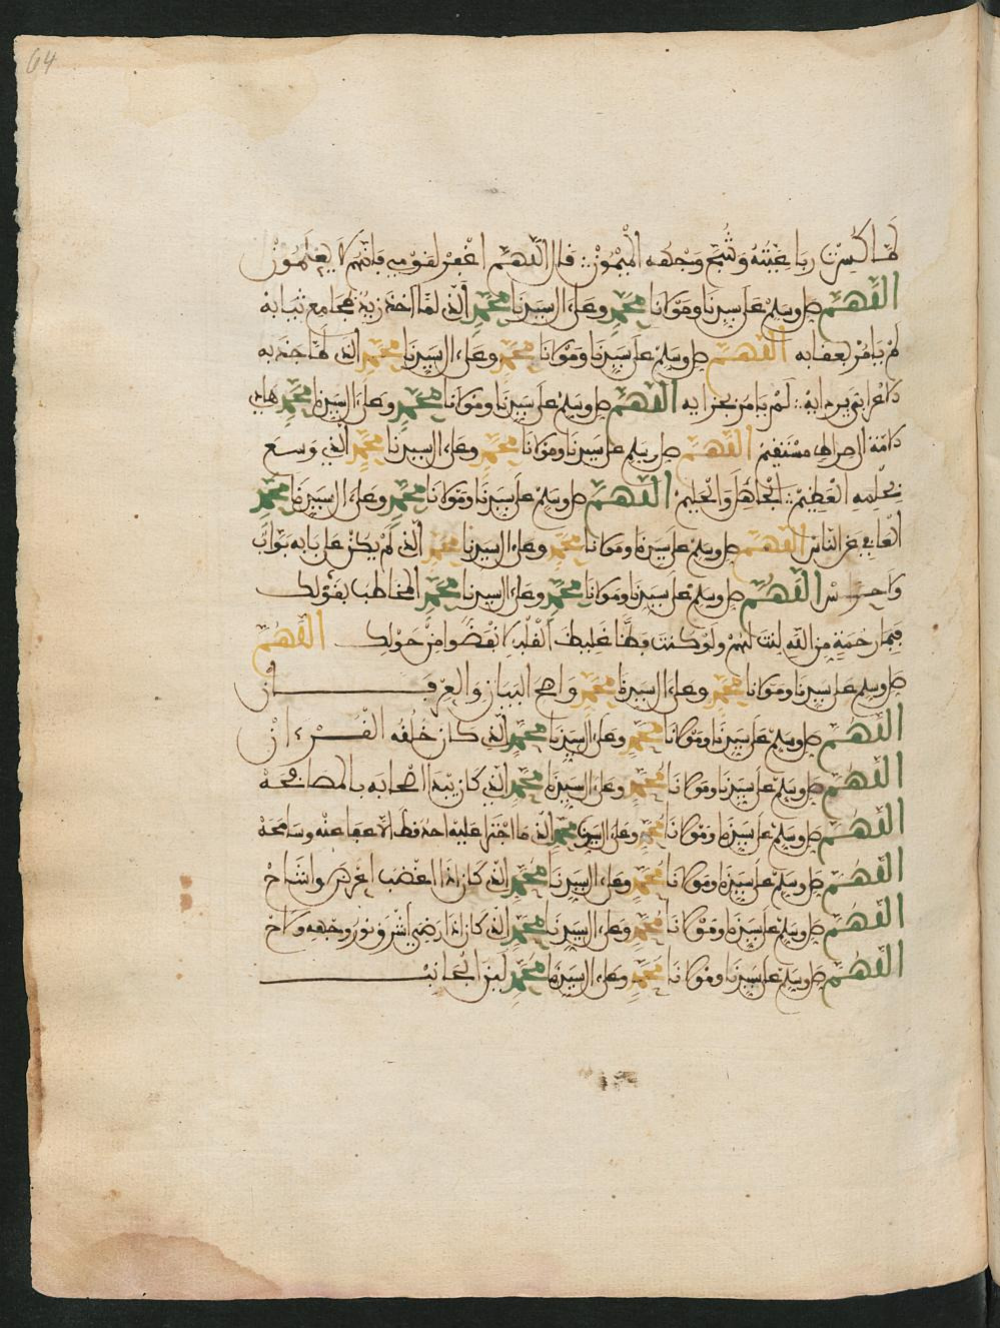 64
لما كسرت رباعيته وشج وجهه الميمون قال اللهم اغفر لقومي فإنهم لا يعلمون
اللهم صل وسلم على سيدنا ومولانا محمد وعلى ءال سيدنا محمد الذي لما أخذ زيد بمجامع ثيابه
لم يامر بعقابه اللهم صل وسلم على سيدنا ومولانا محمد وعلى ءال سيدنا محمد الذي لما جذبه
الاعرابي بردايه لم يامر بجزايه اللهم صل وسلم على سيدنا ومولانا محمد وعلى ءال سيدنا محمد هادي
الامة الى صراط مستقيم اللهم صل وسلم على سيدنا ومولانا محمد وعلى ءال سيدنا محمد الذي وسع
بحلمه العظيم الجاهل والحليم اللهم صل وسلم على سيدنا ومولانا محمد وعلى ءال سيدنا محمد
العافي عن الناس اللهم صل وسلم على سيدنا ومولانا محمد وعلى ءال سيدنا محمد الذي لم يكن على بابه بواب
ولا حراس اللهم صل وسلم على سيدنا ومولانا محمد وعلى ءال سيدنا محمد المخاطب بقولك
فبما رحمة من الله لنت لهم ولو كنت فظا غليظ القلب لانفضوا من حولك اللهم
صل وسلم على سيدنا ومولانا محمد وعلى ءال سيدنا محمد واضح البيان والعرفان
اللهم صل وسلم على سيدنا ومولانا محمد وعلى ءال سيدنا محمد الذي كان خلقه القرءان
اللهم صل وسلم على سيدنا ومولانا محمد وعلى ءال سيدنا محمد الذي كان يبدا الصحابه بالمصافحة
اللهم صل وسلم على سيدنا ومولانا محمد وعلى ءال سيدنا محمد الذي ما اجترا عليه احد قط الا عفا عنه وسامحه
اللهم صل وسلم على سيدنا ومولانا محمد وعلى ءال سيدنا محمد الذي كان اذا اغضب اعرض واشاح
اللهم صل وسلم على سيدنا ومولانا محمد وعلى ءال سيدنا محمد الذي كان اذا رضي اشرق نور وجهه ولاح
اللهم صل وسلم على سيدنا ومولانا محمد وعلى ءال سيدنا محمد لين الجانب